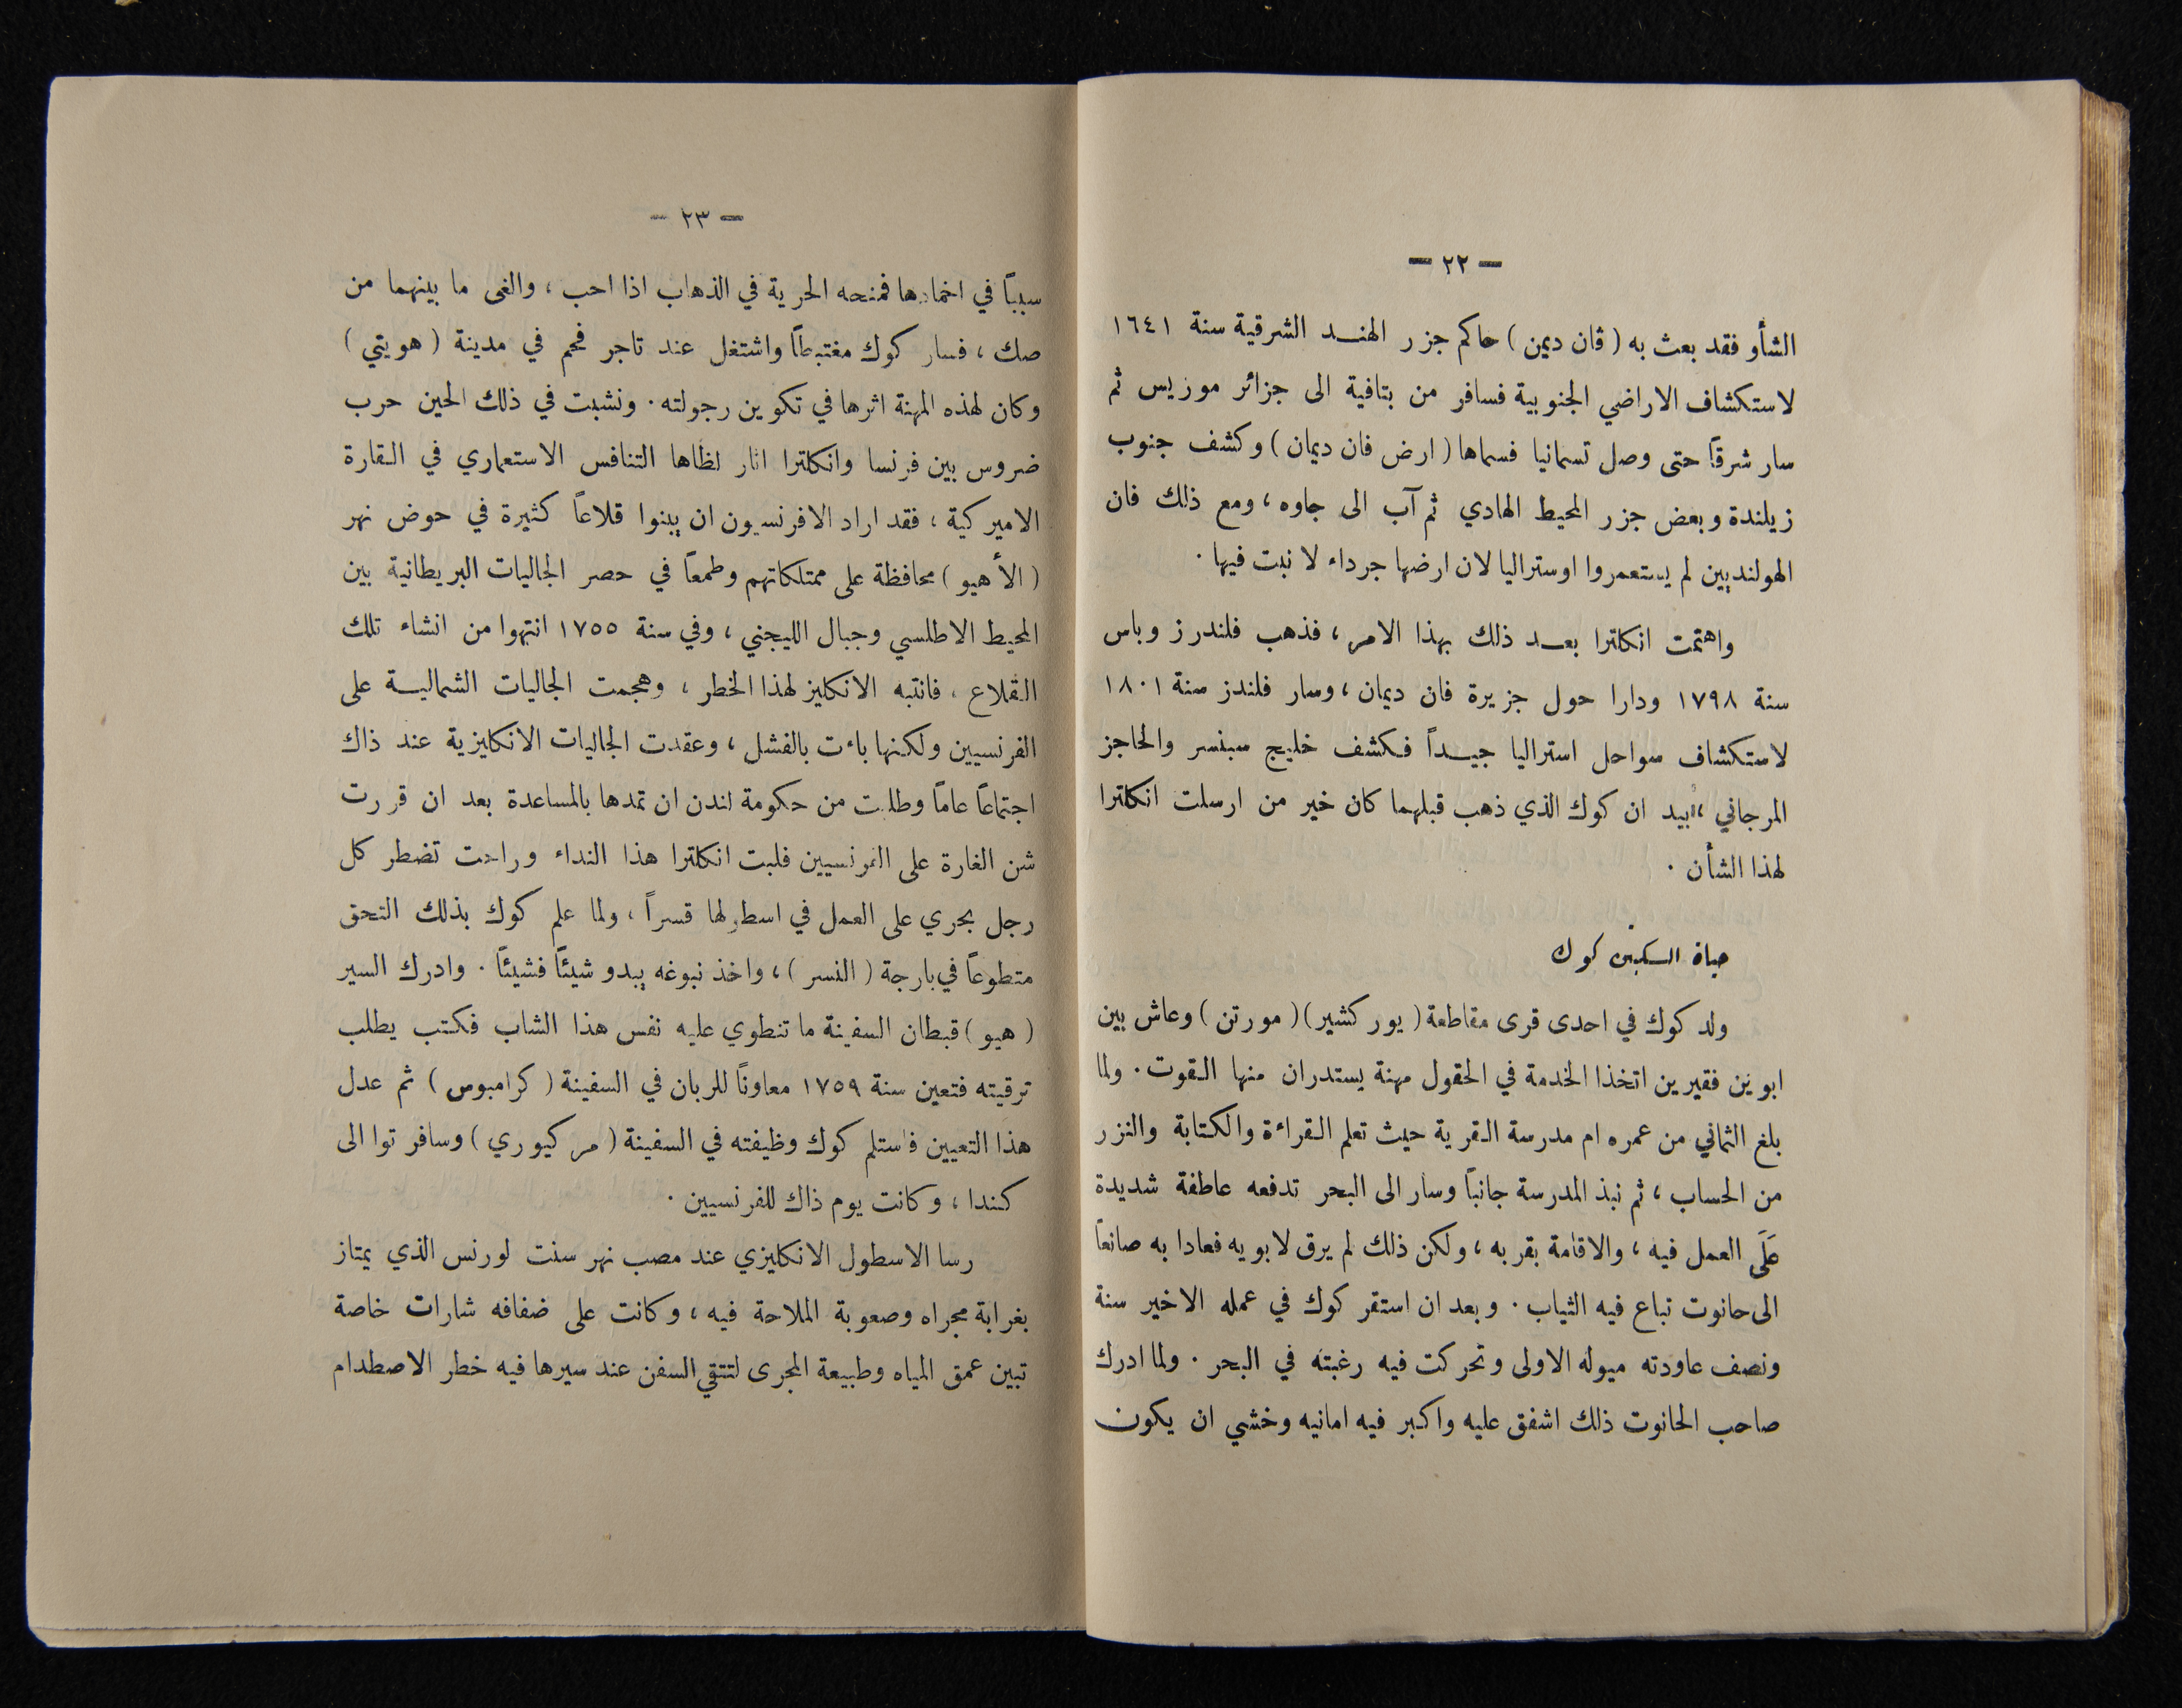 — ٢٢ —
الشأو فقد بعث به ( ڤان ديمن ) حاكم جزر الهند الشرقية سنة ١٦٤١
لاستكشاف الاراضي الجنوبية فسافر من بتافية الى جزائر موزيس ثم
سار شرقاً حتى وصل تسمانيا فسماها ( ارض فان ديمان ) وكشف جنوب
زيلندة وبعض جزر المحيط الهادي ثم آب الى جاوه ، ومع ذلك فان
الهولنديين لم يستعمروا اوستراليا لان ارضها جرداء لا نبت فيها .
واهتمت انكلترا بعد ذلك بهذا الامر ، فذهب فلندرز وباس
سنة ١٧٩٨ ودارا حول جزيرة فان ديمان ، وسار فلندز سنة ١٨٠١
لاستكشاف سواحل استراليا جيداً فكشف خليج سبنسر والحاجز
المرجاني ، بيد ان كوك الذي ذهب قبلهما كان خير من ارسلت انكلترا
لهذا الشأن .
حياة السكبتن كوك
ولد كوك في احدى قرى مقاطعة ( يوركشير ) ( مورتن ) وعاش بين
ابوين فقيرين اتخذا الخدمة في الحقول مهنة يستدران منها القوت . ولما
بلغ الثماني من عمره ام مدرسة القرية حيث تعلم القراءة والكتابة والنزر
من الحساب ، ثم نبذ المدرسة جانباً وسار الى البحر تدفعه عاطفة شديدة
عَلَى العمل فيه ، والاقامة بقربه ، ولكن ذلك لم يرق لابويه فعادا به صانعاً
الى حانوت تباع فيه الثياب . وبعد ان استقر كوك في عمله الاخير سنة
ونصف عاودته ميوله الاولى وتحركت فيه رغبته في البحر . ولما ادرك
صاحب الحانوت ذلك اشفق عليه واكبر فيه امانيه وخشي ان يكون
— ٢٣ —
سبباً في اخمادها فمنحه الحرية في الذهاب اذا احب ، والغى ما بينهما من
صك ، فسار كوك مغتبطاً واشتغل عند تاجر فحم في مدينة ( هويتي )
وكان لهذه المهنة اثرها في تكوين رجولته . ونشبت في ذلك الحين حرب
ضروس بين فرنسا وانكلترا اثار لظاها التنافس الاستعماري في القارة
الاميركية ، فقد اراد الافرنسيون ان يبنوا قلاعاً كثيرة في حوض نهر
( الأهيو ) محافظة على ممتلكاتهم وطمعاً في حصر الجاليات البريطانية بين
المحيط الاطلسي وجبال الليجني ، وفي سنة ١٧٥٥ انتهوا من انشاء تلك
القلاع ، فانتبه الانكليز لهذا الخطر ، وهجمت الجاليات الشمالية على
الفرنسيين ولكنها باءت بالفشل ، وعقدت الجاليات الانكليزية عند ذاك
اجتماعاً عاماً وطلبت من حكومة لندن ان تمدها بالمساعدة بعد ان قررت
شن الغارة على الفرنسيين فلبت انكلترا هذا النداء وراحت تضطر كل
رجل بحري على العمل في اسطولها قسراً ، ولما علم كوك بذلك التحق
متطوعاً في بارجة ( النسر ) ، واخذ نبوغه يبدو شيئاً فشيئاً . وادرك السير
( هيو ) قبطان السفينة ما تنطوي عليه نفس هذا الشاب فكتب يطلب
ترقيته فتعين سنة ١٧٥٩ معاوناً للربان في السفينة ( كرامبوس ) ثم عدل
هذا التعيين فاستلم كوك وظيفته في السفينة ( مركيوري ) وسافر توا الى
كندا ، وكانت يوم ذاك للفرنسيين .
رسا الاسطول الانكليزي عند مصب نهر سنت لورنس الذي يمتاز
بغرابة مجراه وصعوبة الملاحة فيه ، وكانت على ضفافه شارات خاصة
تبين عمق المياه وطبيعة المجرى لتتقي السفن عند سيرها فيه خطر الاصطدام